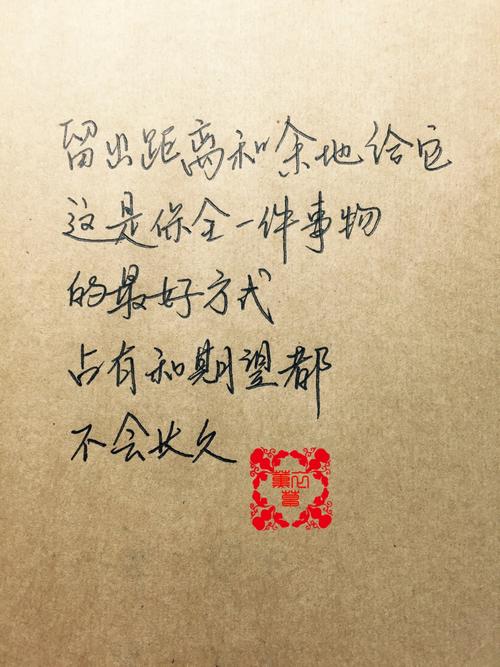 留出距离和余地给它
这是保全一件事物
的最好方式
占有和期望都
不会长久